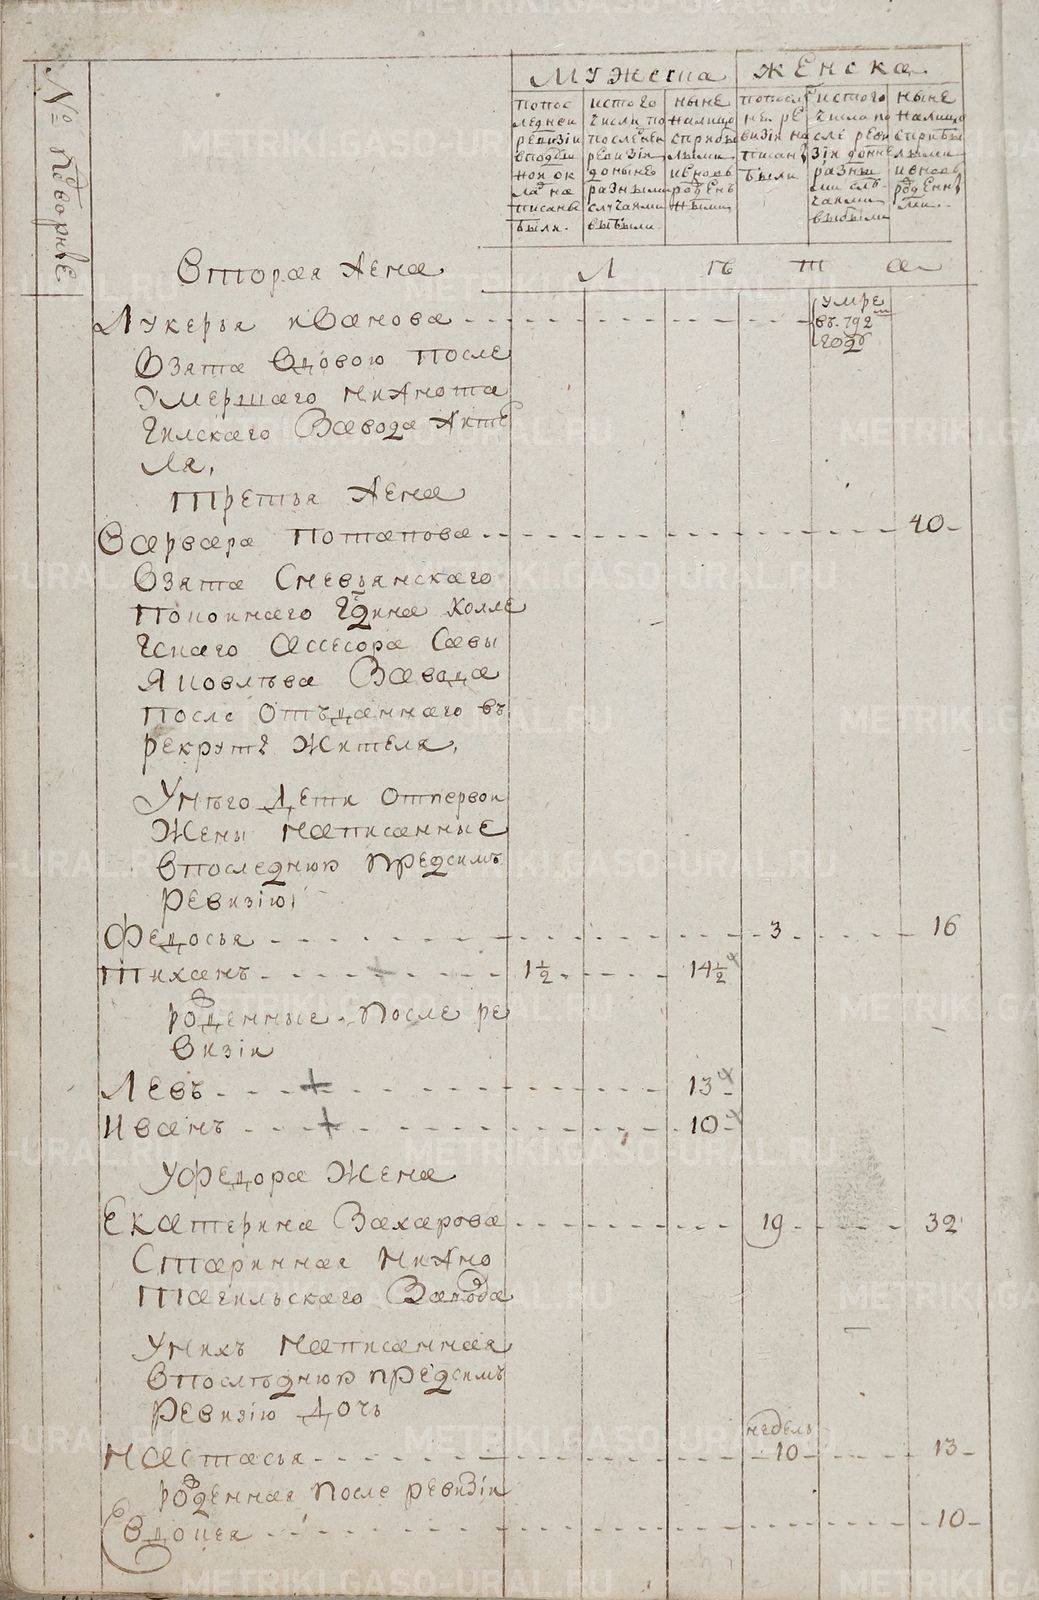 № подворные
Мужеска
Женска
попос
ледней
ревизіи
вподуш
ной ок
лад на
писаны
были.
истого
числа по
после ней
ревизіи
до ныне
разными
случаями
выбыли
ныне
налицо
сприбы
лыми
ивновь
рожден
ными
попосл
ней ре
визіи на
писаны
были
истого
числа по
сле реви
зіи доныне
разны
ми слу
чаями
выбыли
ныне
налицо
сприбы
лыми
ивновь
рожденны
ми
Л ѣ т а
Вторая жена
Лукерья иванова
умре
въ 792м
годѣ
Взята вдовою после
умершаго нижнота
гилскаго завода жите
ля,
третья жена
Варвара потапова 40
Взята Сневьянскаго
покойнаго гдина колле
жскаго Ассесора Савы
Яковлѣва завода
после отъданнаго въ
рекруты жителя,
Унѣго дети отпервой
жены написанные
впоследнюю предсимъ
ревизію
Федосья 3 16
Тиханъ 1½ 14½
рожденные после ре
визіи
Левъ 13
Иванъ 10
Уфедора жена
Екатерина Захарова 19 32
Старинная нижно
тагильскаго завода
Унихъ написанная
впослѣднюю предсимъ
ревизію дочь
недель
Настасья 10 13
рожденная после ревизіи
Евдокея 10
METRIKI.GASO-URAL.RU